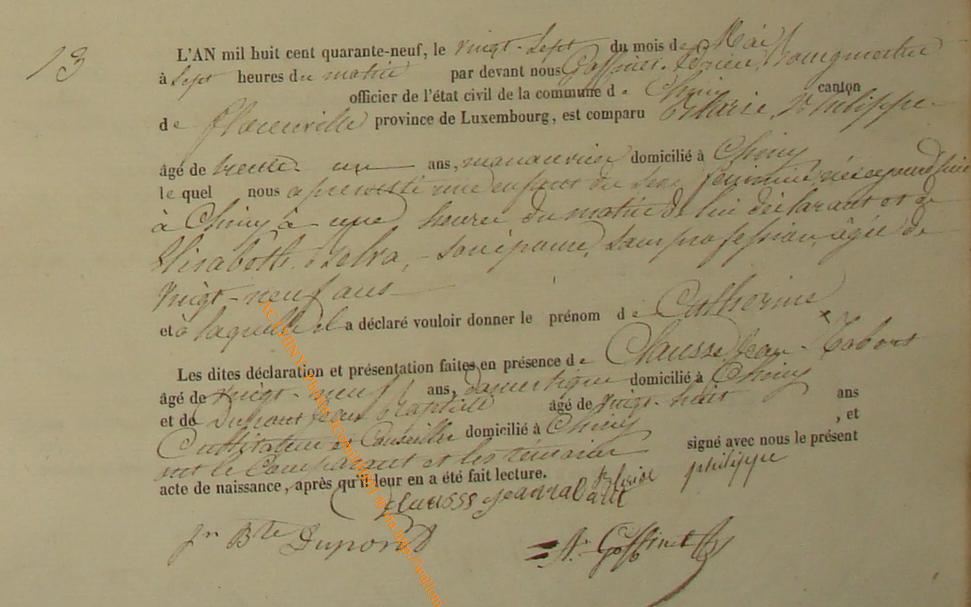 13
L'AN mil huit cent quarante-neuf, le vingt-sept du mois de Mai
à Sept heures du matin par devant nous Goffinet, Bourgmestre
officier de l'état civil de la commune de Chiny canton
de florenville province de Luxembourg, est comparu philippe
âgé de trente un ans, manoeuvrier domicilié à Chiny
le quel nous a présenté une enfant du sexe féminin, née aujourd'hui
à Chiny à une heure du matin de lui déclarant et de
Elisabeth, son épouse, sans profession, âgée de
vingt-neuf ans
et à laquelle il a déclaré vouloir donner le prénom de Catherine
Les dites déclaration et présentation faites en présence de Clausse Jean
âgé de vingt-neuf ans, domestique domicilié à Chiny
et de Dupont Jean Baptiste âgé de vingt-huit ans
Cultivateur et Conseiller domicilié à Chiny, et
ont le Comparant et les témoins signé avec nous le présent
acte de naissance, après qu'il leur en a été fait lecture.
philippe
Clausse jean
Jn Bte Dupont
Goffinet